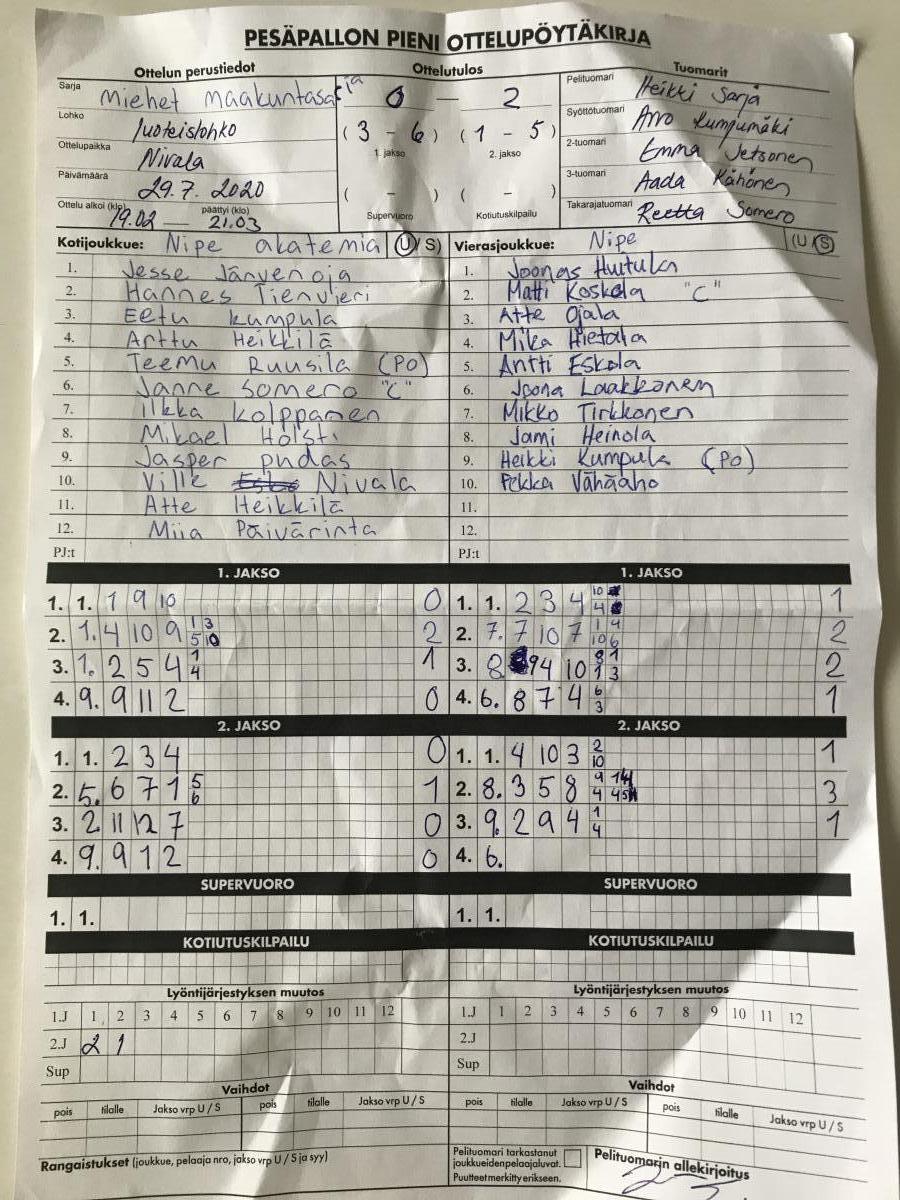 PESÄPALLON PIENI OTTELUPÖYTÄKIRJA
Ottelun perustiedot
Sarja Miehet maakuntasarja
Lohko luoteislohko
Ottelupaikka Nivala
Päivämäärä 29.7.2020
Ottelu alkoi (klo) 19.02 — päättyi (klo) 21.03
Ottelutulos
0 — 2
(3 - 6) (1 - 5)
1. jakso 2. jakso
( - ) ( - )
Supervuoro Kotiutuskilpailu
Tuomarit
Pelituomari Heikki Sarja
Syöttötuomari Arvo Kumpumäki
2-tuomari Emma Jetsonen
3-tuomari Aada Kähönen
Takarajatuomari Reetta Somero
Kotijoukkue: Nipe akatemia (U/S)
1. Jesse Järvenoja
2. Hannes Tienvieri
3. Eetu Kumpula
4. Arttu Heikkilä
5. Teemu Ruusila (PO)
6. Janne Somero "C"
7. Ilkka Kolppanen
8. Mikael Holsti
9. Jasper pudas
10. Ville Nivala
11. Atte Heikkilä
12. Miia Päivärinta
PJ:t
Vierasjoukkue: Nipe (U/S)
1. Joonas Huitula
2. Matti Koskela "C"
3. Atte Ojala
4. Mika Hietala
5. Antti Eskola
6. Joona Laakkonen
7. Mikko Tirkkonen
8. Jami Heinola
9. Heikki Kumpula (PO)
10. Pekka Vähäaho
11.
12.
PJ:t
1. JAKSO
1. 1. 1 9 10 0
2. 1. 4 10 9 1 3 5 10 2
3. 1. 2 5 4 1 4 1
4. 9. 9 11 2 0
1. JAKSO
1. 1. 2 3 4 10 4 1
2. 7. 7 10 7 1 4 10 6 2
3. 8. 9 4 10 8 1 1 3 2
4. 6. 8 7 4 6 3 1
2. JAKSO
1. 1. 2 3 4 0
2. 5. 6 7 1 5 6 1
3. 2 11 12 7 0
4. 9. 9 1 2 0
2. JAKSO
1. 1. 4 10 3 2 10 1
2. 8. 3 5 8 9 4 3
3. 9. 2 9 4 1 4 1
4. 6.
SUPERVUORO
1. 1.
SUPERVUORO
1. 1.
KOTIUTUSKILPAILU
KOTIUTUSKILPAILU
Lyöntijärjestyksen muutos
1.J 1 2 3 4 5 6 7 8 9 10 11 12
2.J 2 1
Sup
Lyöntijärjestyksen muutos
1.J 1 2 3 4 5 6 7 8 9 10 11 12
2.J
Sup
Vaihdot
pois tilalle Jakso vrp U / S pois tilalle Jakso vrp U / S
Vaihdot
pois tilalle Jakso vrp U / S pois tilalle Jakso vrp U / S
Rangaistukset (joukkue, pelaaja nro, jakso vrp U / S ja syy)
Pelituomari tarkastanut
joukkueiden pelaajaluvat.
Puutteet merkitty erikseen.
Pelituomarin allekirjoitus